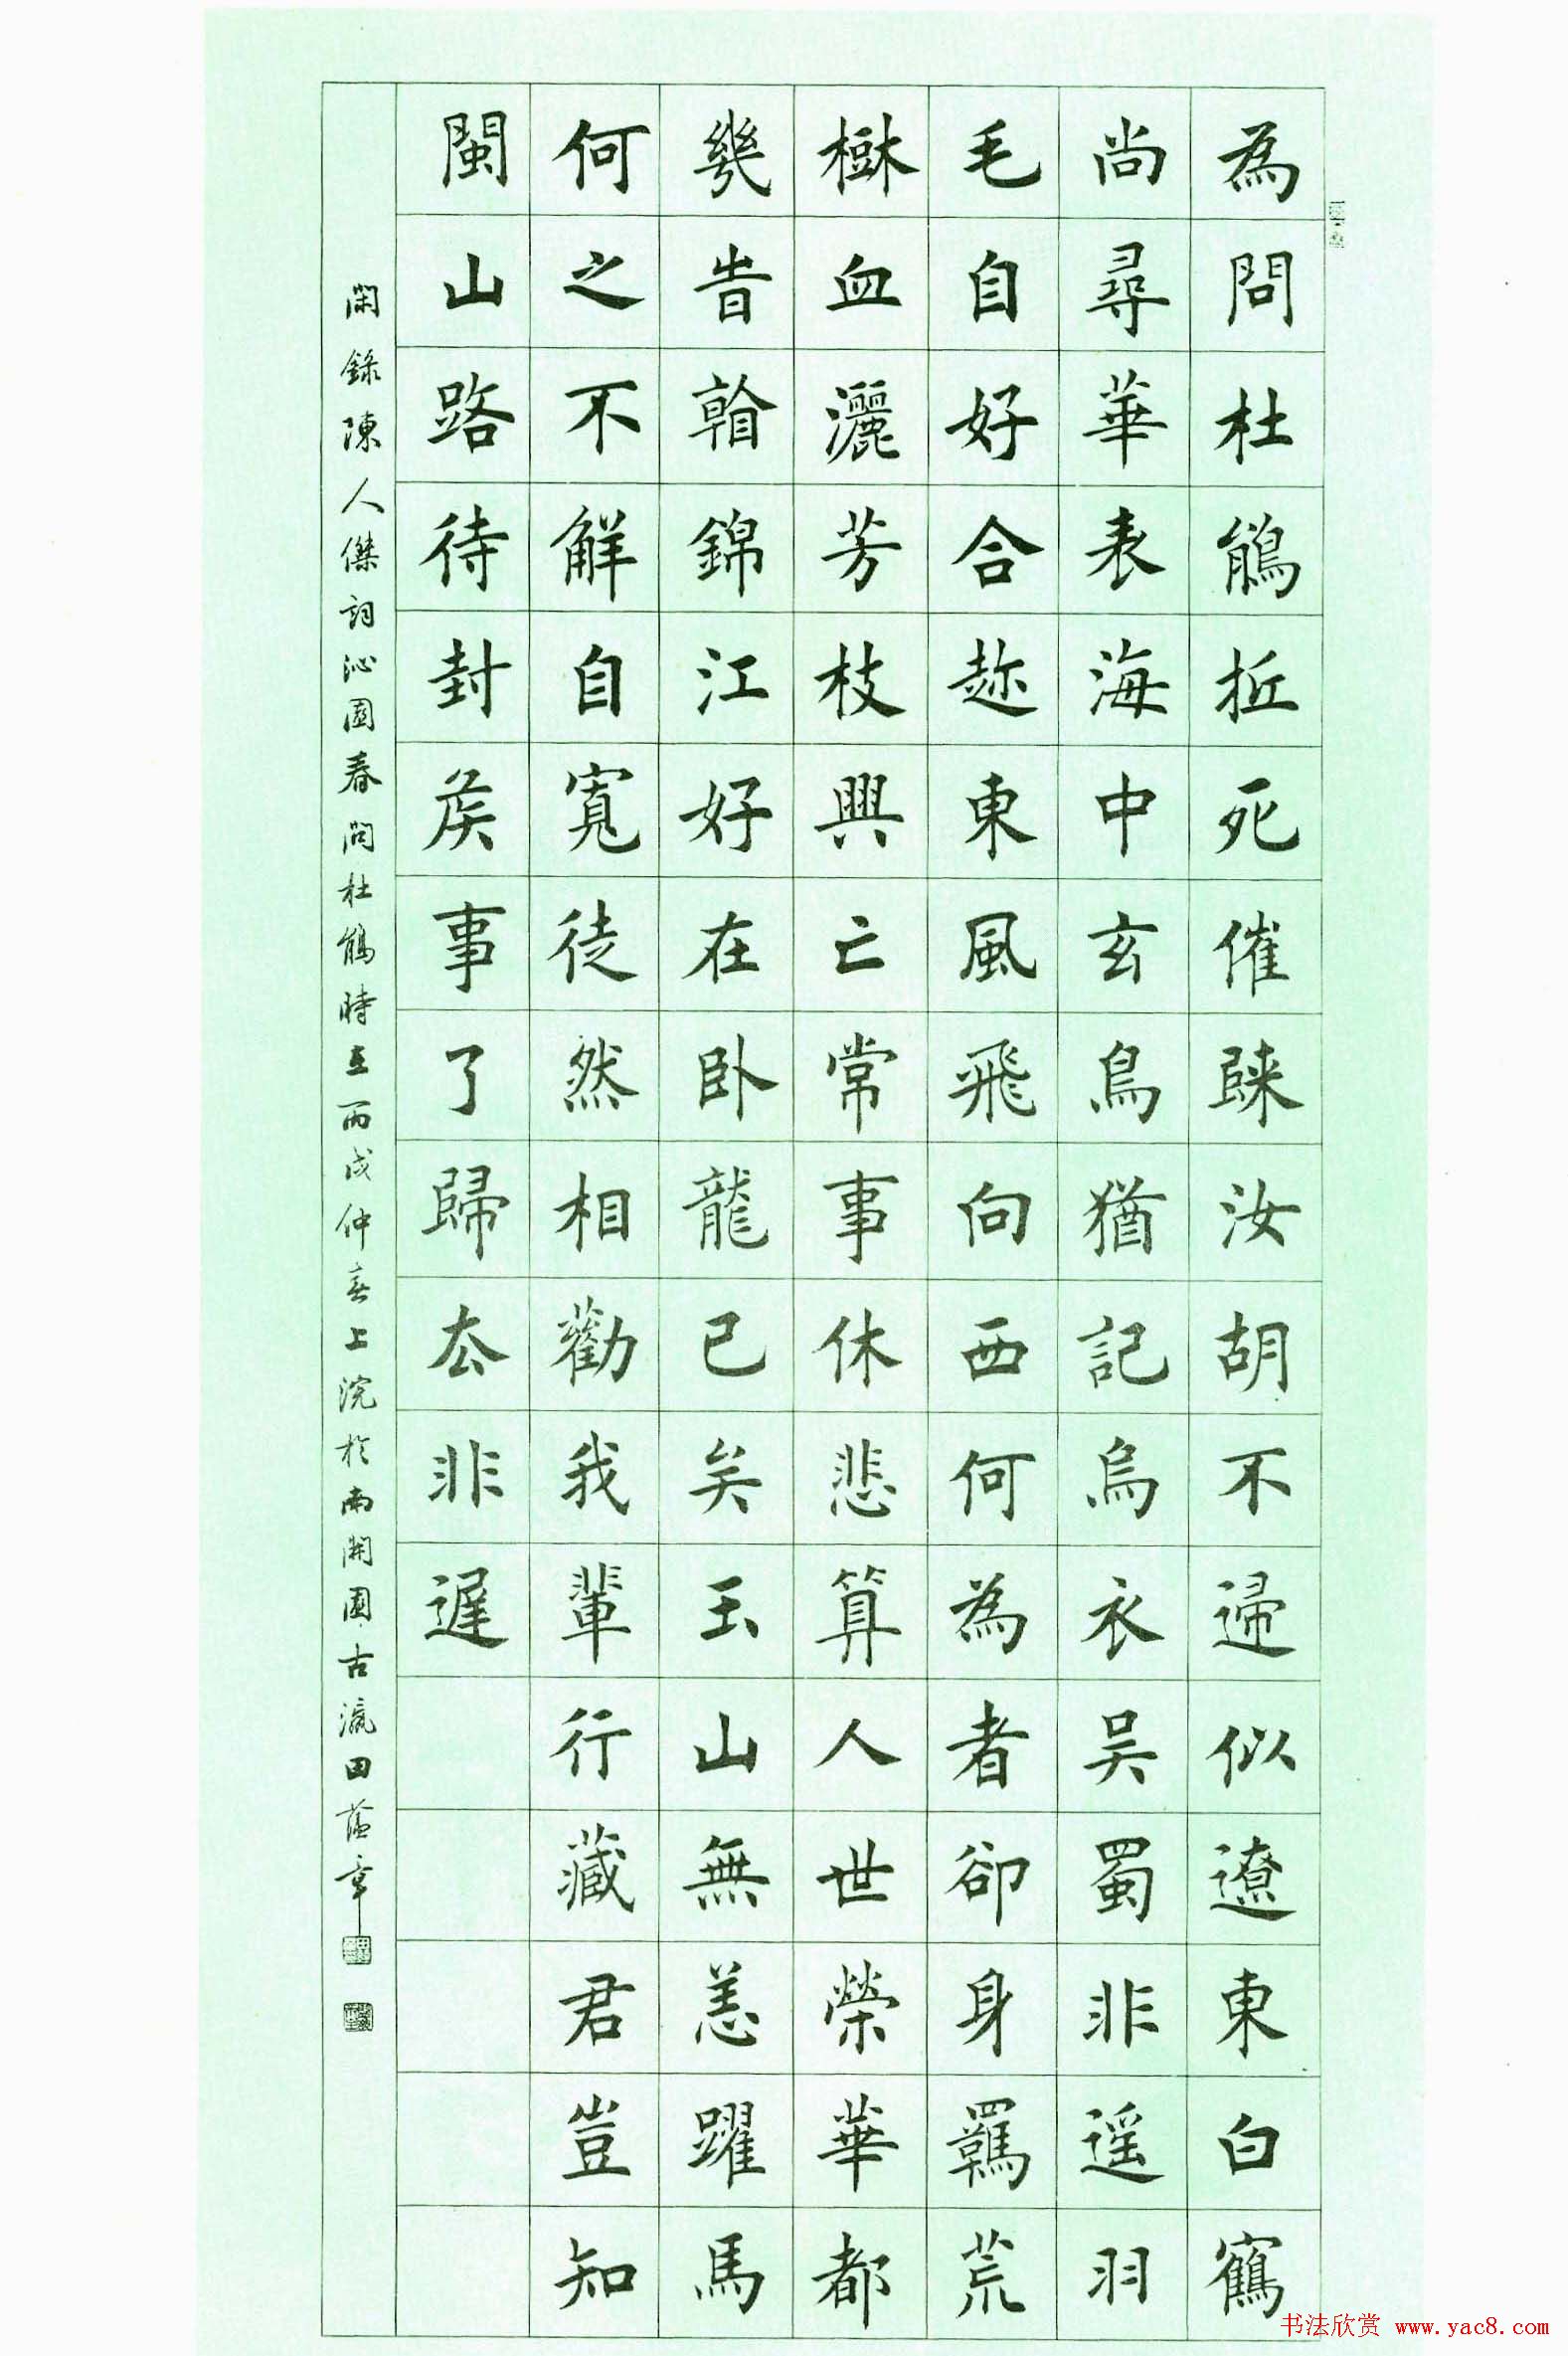 為問杜鵑抵死催歸汝胡不歸似遼東白鶴
尚尋華表海中玄鳥猶記烏衣吴蜀非遥羽
毛自好合趂東風飛向西何為者卻身羈荒
樹血灑芳枝興亡常事休悲算人世榮華都
幾時看錦江好在卧龍已矣玉山無恙躍馬
何之不解自寬徒然相勸我輩行藏君豈知
閩山路待封矦事了歸去非遲
閑錄陳人傑詞沁園春問杜鵑時在丙戌仲春上浣於南開園古瀛田蘊章
书法欣赏 www.yac8.com